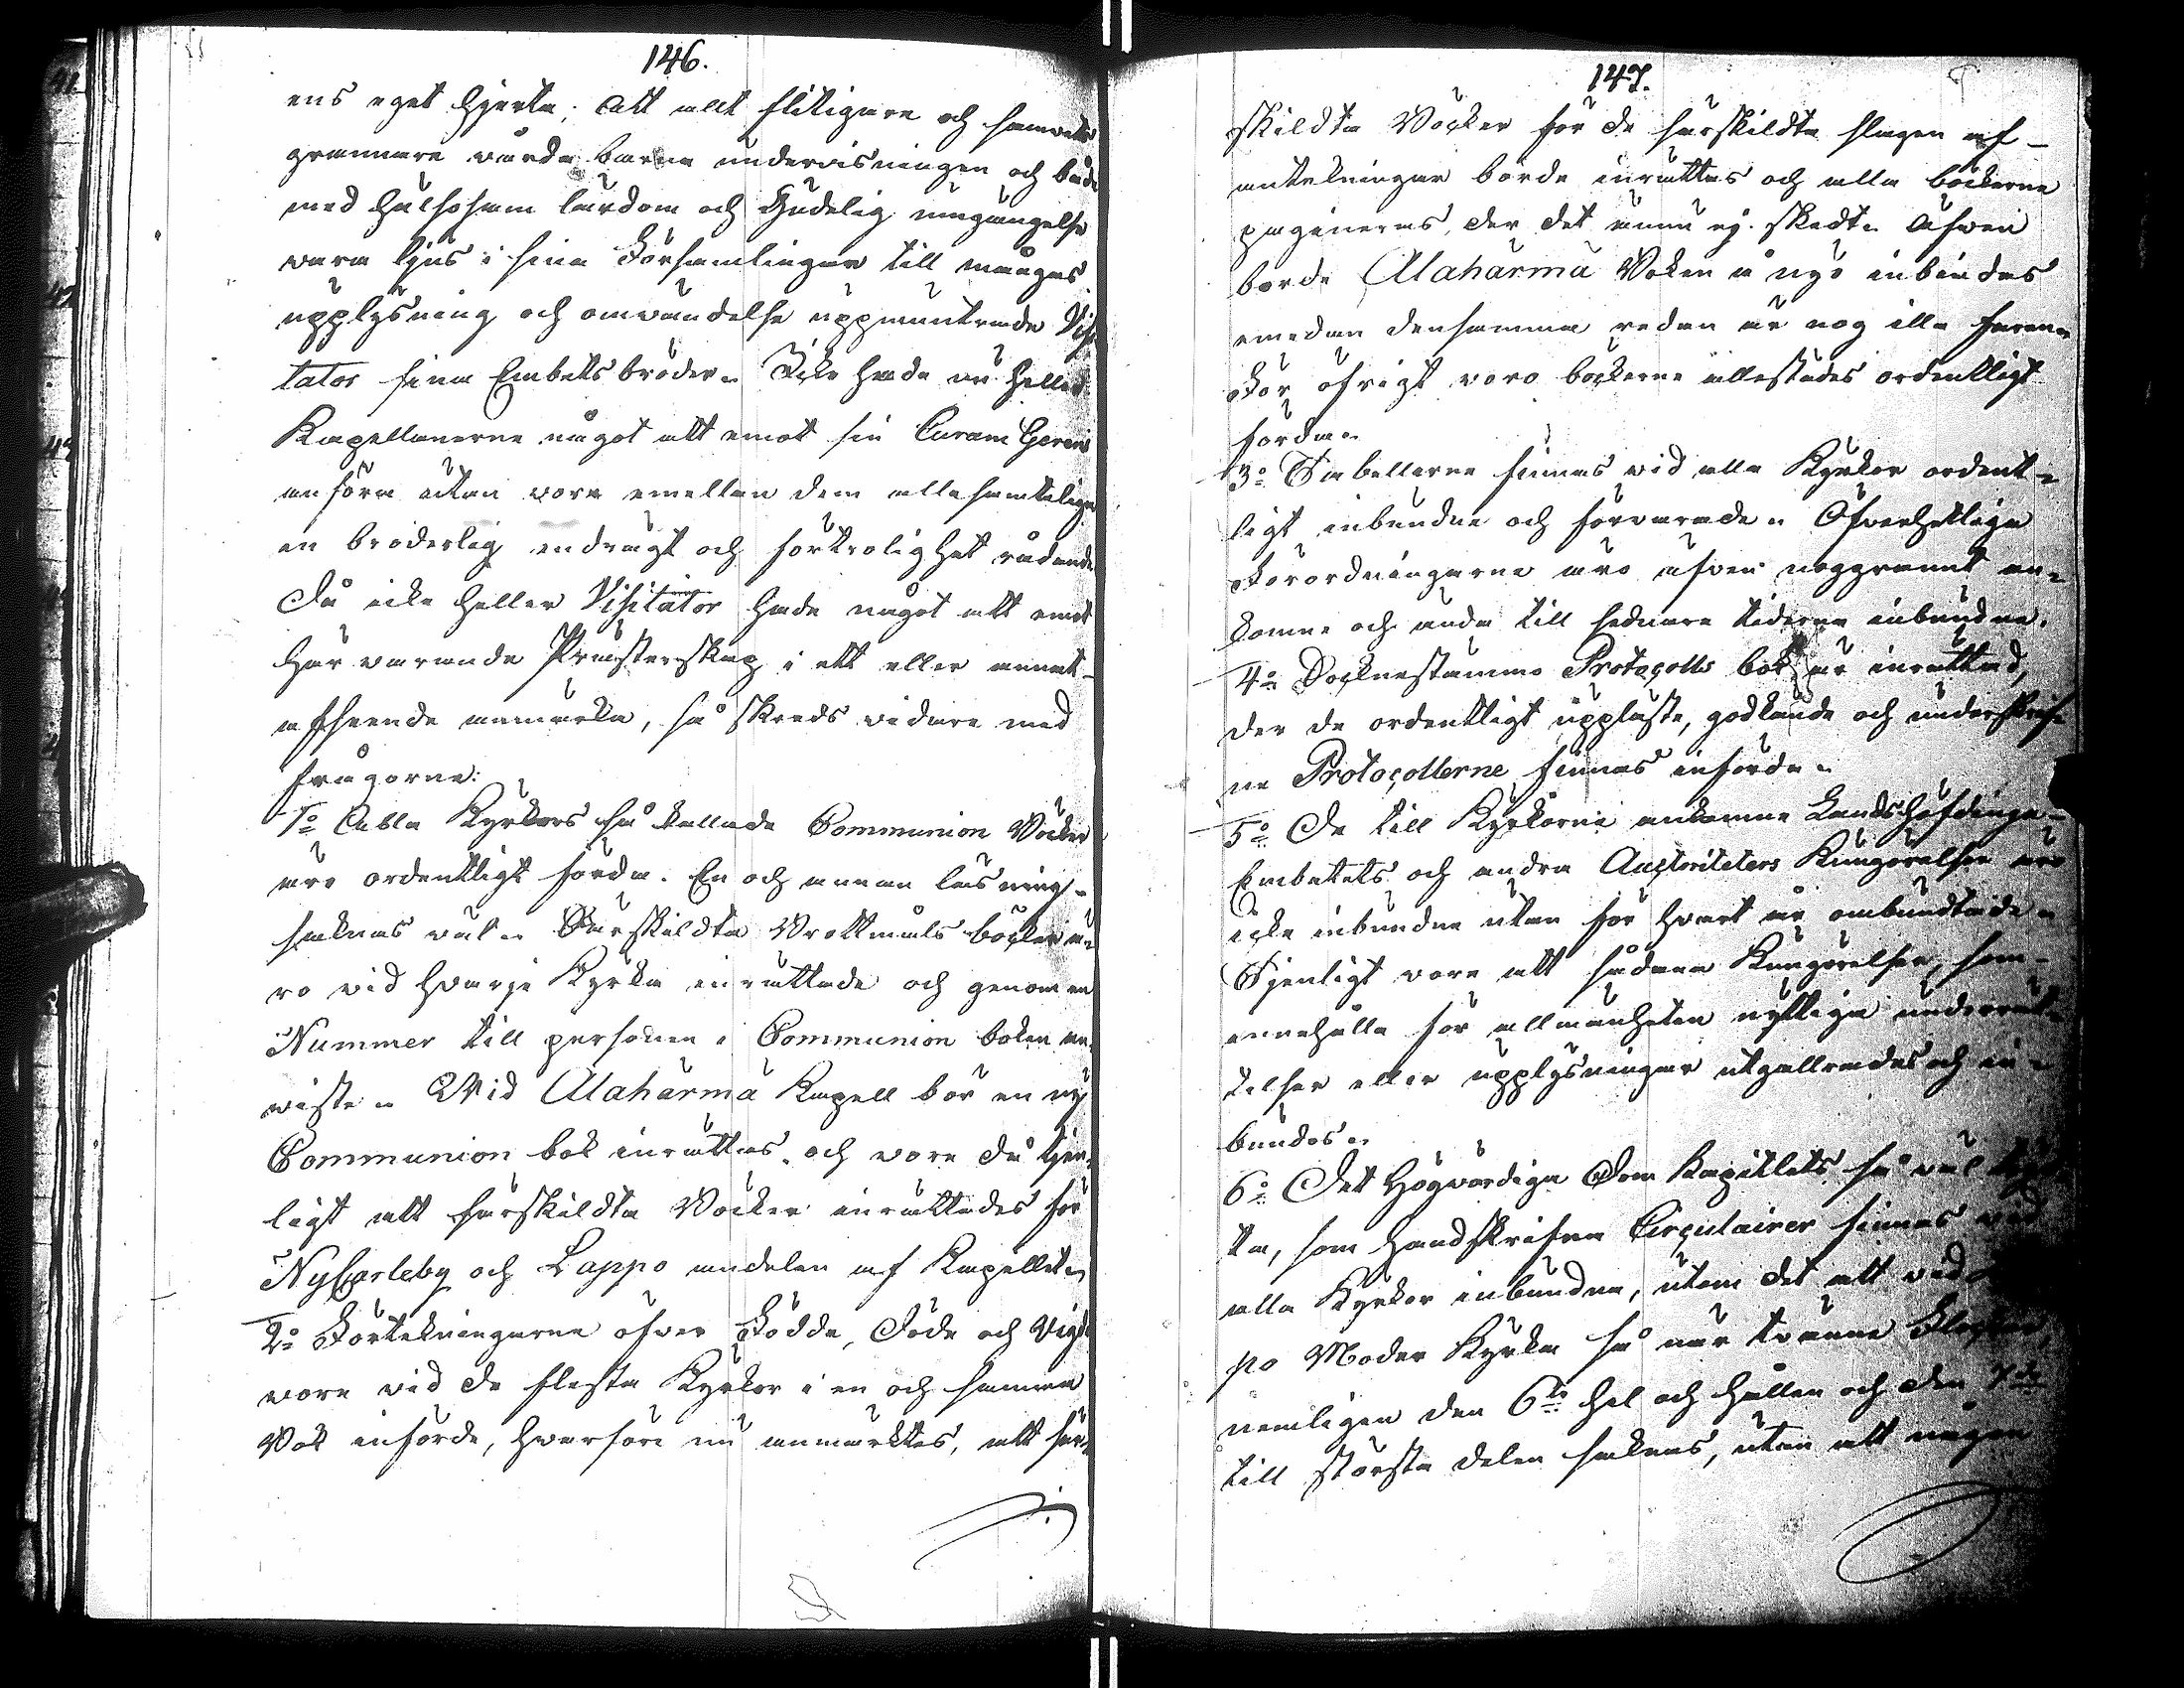 146.
ens eget hjerta; Att allt flitigare och samvets
grannare vårda barna undervisningen och både
med hälsosam lärdom och Gudelig umgängelse
vara ljus i sina Församlingar till mångas
upplysning och omvändelse uppmuntrade Visi
tator sina Embetsbröder. Icke hade nu heller
Kapellanerne något att emot sin Curam Gerens
anföra utan vore emellan dem alla samtelige
en broderlig endrägt och förtrolighet rådande
Då icke heller Visitator hade något att emot
härvarande Prästerskap i ett eller annat
afseende anmärka, så skreds vidare med
frågorne:
1o Alla Kyrkors så kallade Communion Böcker
äro ordentligt förda. En och annan läsning
saknas väl. Särskildta Brottmåls böcker ä-
ro vid hvarje Kyrka inrättade och genom en
Nummer till personen i Communion boken an
viste. Vid Alahärmä Kapell bör en ny
Communion bok inrättas, och vore då tjen-
ligt att särskildta Böcker inrättades för
NyCarleby och Lappo andelen af Kapellet.
2o Förtekningarne öfver Födde, Döde och Vigde
vore vid de flesta Kyrkor i en och samma
Bok införde, hvarföre nu anmärktes, att sär-
147.
skildta Böcker för de särskildta slagen af
antekningar borde inrättas och alla böckerne
pagineras, der det ännu ej skedt. Äfven
borde Alahärmä Boken å nyo inbindas
emedan densamma redan är nog illa faren.
För öfrigt voro böckerne allestädes ordentligt
förda.
3o Tabellerne finnas vid alla Kyrkor ordent-
ligt inbundne och förvarade. Öfverhetliga
Förordningarne äro äfven noggrannt an-
komne och ända till sednare tiderne inbundne.
4o Socknestämmo Protocolls bok är inrättad,
der de ordentligt uppläste, godkände och underskrif-
ne Protocollerne finnas införde.
5o De till Kyrkorne ankomne Landshöfdinge-
Embetets och andra Auctoriteters Kungörelser äro
icke inbundne utan för hvart år ombundtade.
Tjenligt vore att sådana Kungörelser, som
innehålla för allmänheten nyttiga underrät-
telser eller upplysningar utgallrades och in-
bundos.
6o Det Högvördiga Dom Kapitlets så väl
ta, som handskrifna Circulairer finnas vid
alla Kyrkor inbundne, utom det att vid
po Moder Kyrka så när tvänne
nemligen den 6te hel och hållen och den 7de
till största delen saknas, utan att någon